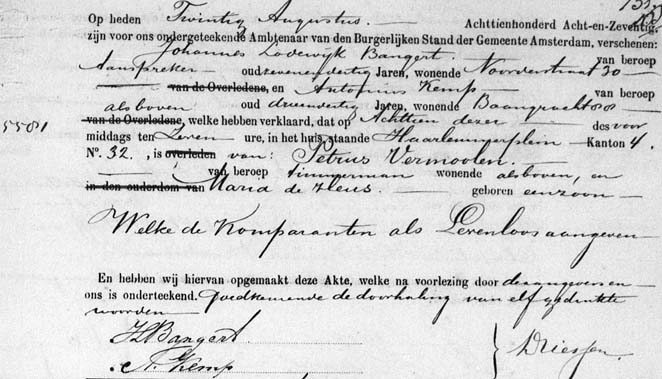 Op heden Twintig Augustus. Achttienhonderd Acht-en-Zeventig,
zijn voor ons ondergeteekende Ambtenaar van den Burgerlijken Stand der Gemeente Amsterdam, verschenen:
Johannes Lodewijk Bangert. van beroep
Aanspreker oud zevenendertig Jaren, wonende Noorderstraat 30
van de Overledene, en Antonius Kemp van beroep
alsboven oud drieendertig Jaren, wonende Baangracht 88
van de Overledene, welke hebben verklaard, dat op Achttien dezer des voor
5581
middags ten Zeven ure, in het huis, staande Haarlemmerplein Kanton 4.
No. 32, is overleden van: Petrus Vermoolen.
van beroep timmerman wonende alsboven, en
in den ouderdom van Maria de Heus. geboren een zoon
Welke de Komparanten als Levenloos aangeven
En hebben wij hiervan opgemaakt deze Akte, welke na voorlezing door de aangevers en
ons is onderteekend. Goedkeurende de doorhaling van elf gedrukte
woorden
JLBangert.
A. Kemp
Driessen.